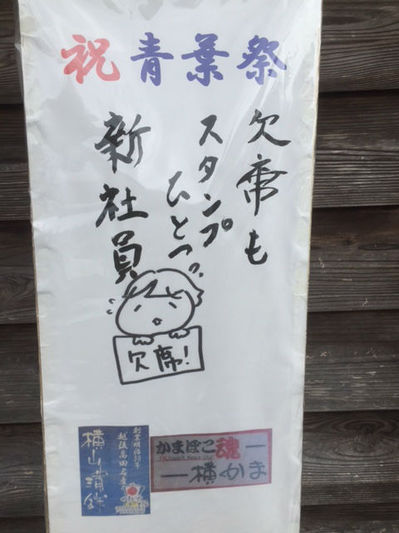 祝青葉祭
欠席も
スタンプ
ひとつ
新社員
欠席!
創業明治35年
越後高田名産
横山蒲鉾
かまぼこ魂
横かま